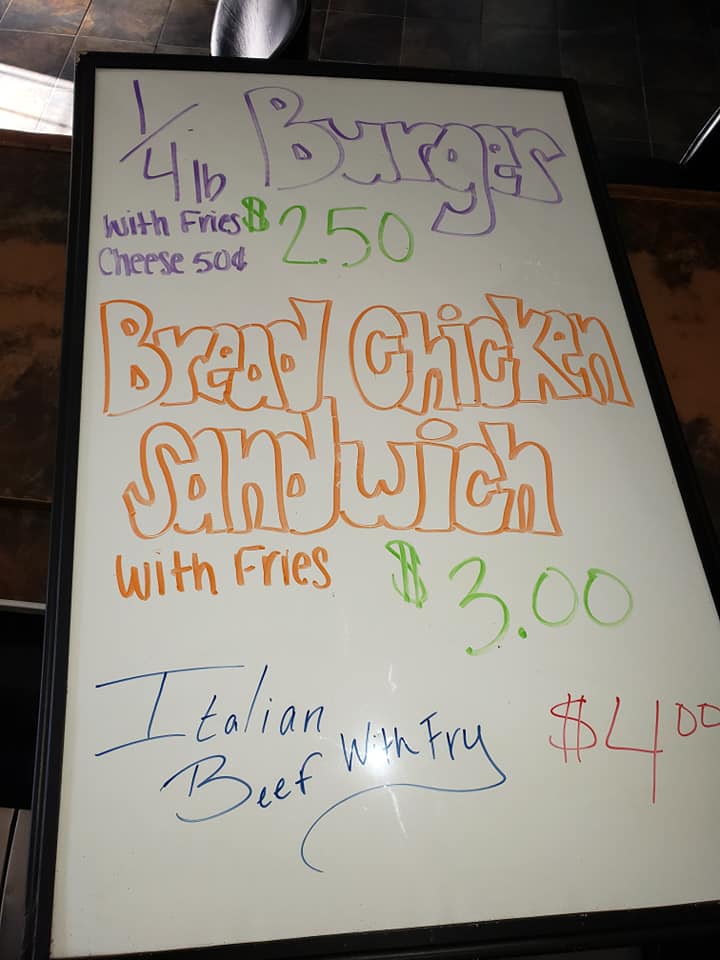 1/4 lb Burger
With Fries $2.50
Cheese 50¢
Bread Chicken
Sandwich
With Fries $3.00
Italian
Beef With Fry $4.00